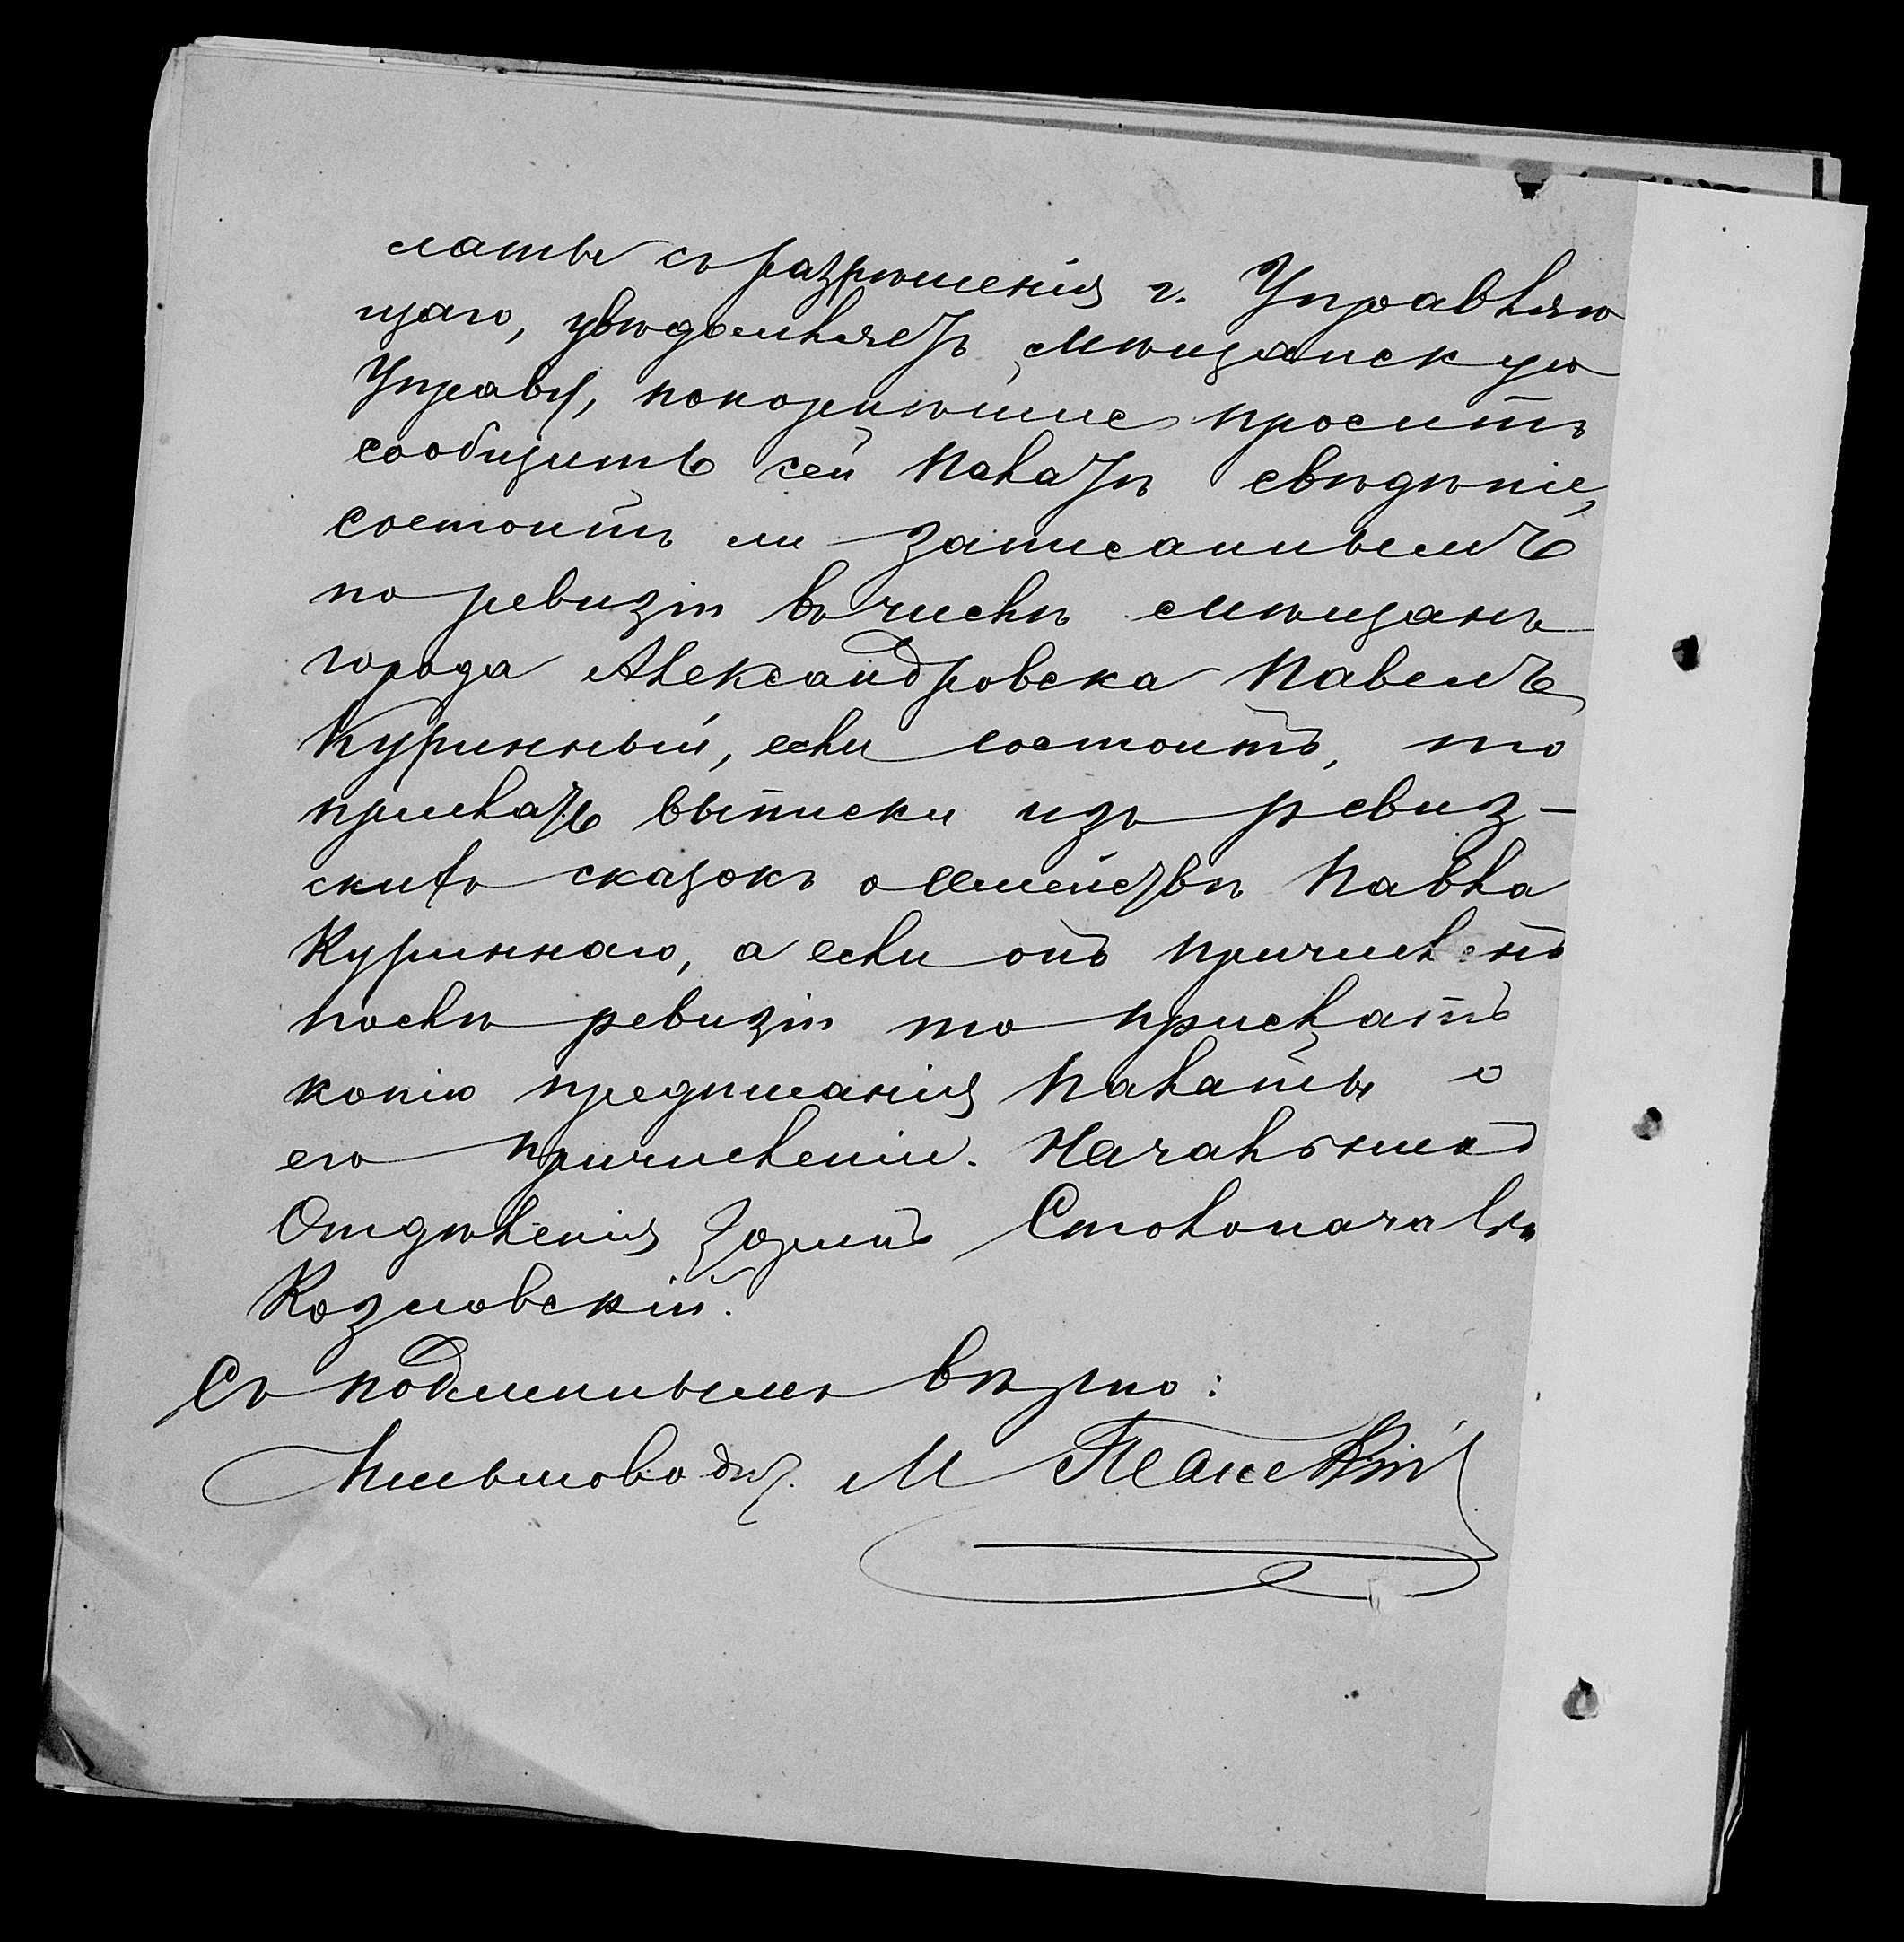 латы съ разрѣшенія г. Управляю
щаго, увѣдомляетъ Мѣщанскую
Управу, покорнѣйше проситъ
сообщить сей Палатѣ свѣдѣніе,
состоитъ ли записаннымъ
по ревизіи въ числѣ мѣщанъ
города Александровска Павелъ
Куринный, если состоитъ, то
прислать выписки изъ ревиз-
скихъ сказокъ о семействѣ Павла
Куриннаго, а если онъ причисленъ
послѣ ревизіи то прислать
копію предписанія Палаты о
его причисленіи. Начальникъ
Отдѣленія Зоринъ Столоначаль
Козловскій.
Съ подлиннымъ вѣрно:
Письмовод. М